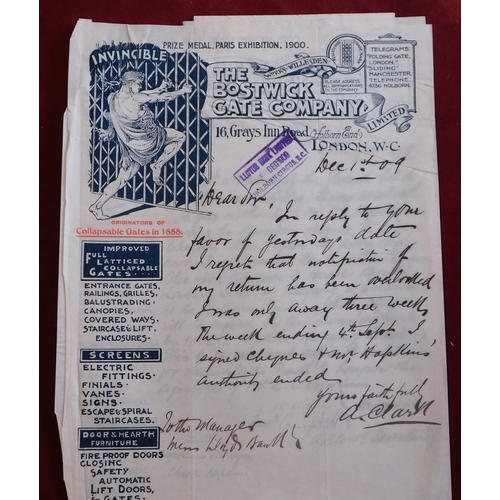 PRIZE MEDAL, PARIS EXHIBITION, 1900.
INVINCIBLE
WORKS-WILLESDEN
THE
BOSTWICK
GATE COMPANY
LIMITED
PLEASE ADDRESS
ALL COMMUNICATIONS
TO THE COMPANY
TELEGRAMS
"FOLDING GATE,
LONDON."
"SLIDING"
MANCHESTER.
TELEPHONE
4736 HOLBORN.
16, Grays Inn Road (Holborn End)
LONDON, W.C.
LLOYDS BANK LIMITED
HOLBORN CIRCUS, E.C.
Dec 1st 09
ORIGINATORS OF
Collapsable Gates in 1888.
IMPROVED
FULL
LATTICED
COLLAPSABLE
GATES
ENTRANCE GATES,
RAILINGS, GRILLES,
BALUSTRADING,
CANOPIES,
COVERED WAYS,
STAIRCASE & LIFT,
ENCLOSURES.
SCREENS
ELECTRIC
FITTINGS.
FINIALS.
VANES.
SIGNS.
ESCAPE & SPIRAL
STAIRCASES.
DOOR & HEARTH
FURNITURE
FIRE PROOF DOORS
CLOSING
SAFETY
AUTOMATIC
LIFT DOORS,
& GATES.
Dear Sir
In reply to your
favor of yesterdays date
I regret that notification of
my return has been overlooked
I was only away three weeks
the week ending 4th Sept. I
signed cheques & Mr Hopkins'
authority ended
Yours faithfull
A. Clark
To the Manager
Messrs Lloyds Bank Ld